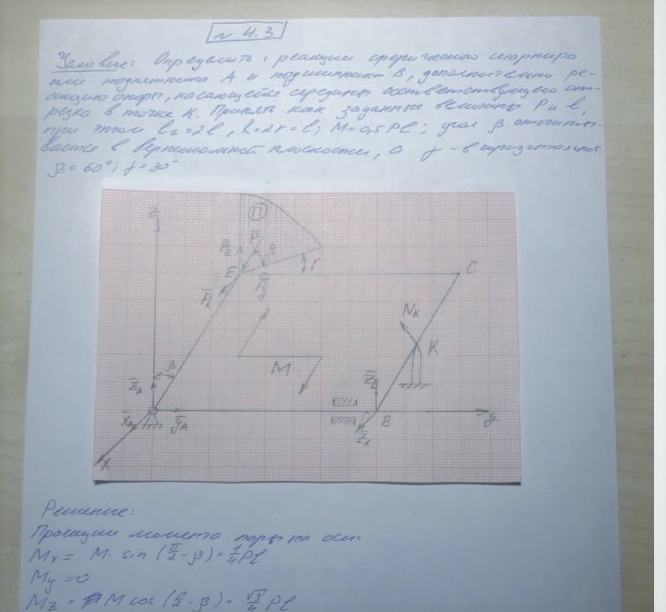 № 4.3
Условие: Определить: реакции сферического шарнира
или подпятника А и подшипника В, дополнительно ре-
акцию опоры, касающейся середины соответствующего от-
резка в точке К. Принять как заданные величины P и l,
при этом 2l, = l; M = 0,5 Pl; угол β отсчиты-
вается в вертикальной плоскости, а γ - в горизонтальной
β = 60°; γ = 30°
z
П
P
β
E
γ
C
N̄K
K
M
β
z̄A
z̄B
x̄A
ȳA
B
y
x
Решение:
Проекции момента пары на оси:
Mx = M · sin (π/2 - β) = 1/4 Pl
My = 0
Mz = M cos (π/2 - β) = √3/4 Pl